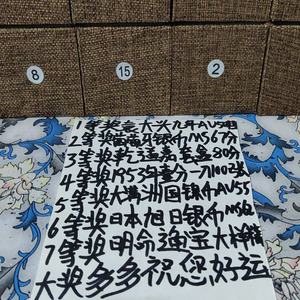 8
15
2
1等奖袁大头九年AU55
2等奖葡萄牙银币MS67分
3等奖乾隆嘉 80分
4等奖1953年 一刀100张
5等奖大满洲国银币AU55
6等奖日本旭日银币MS62
7等奖明命通宝大样
大奖多多祝您好运